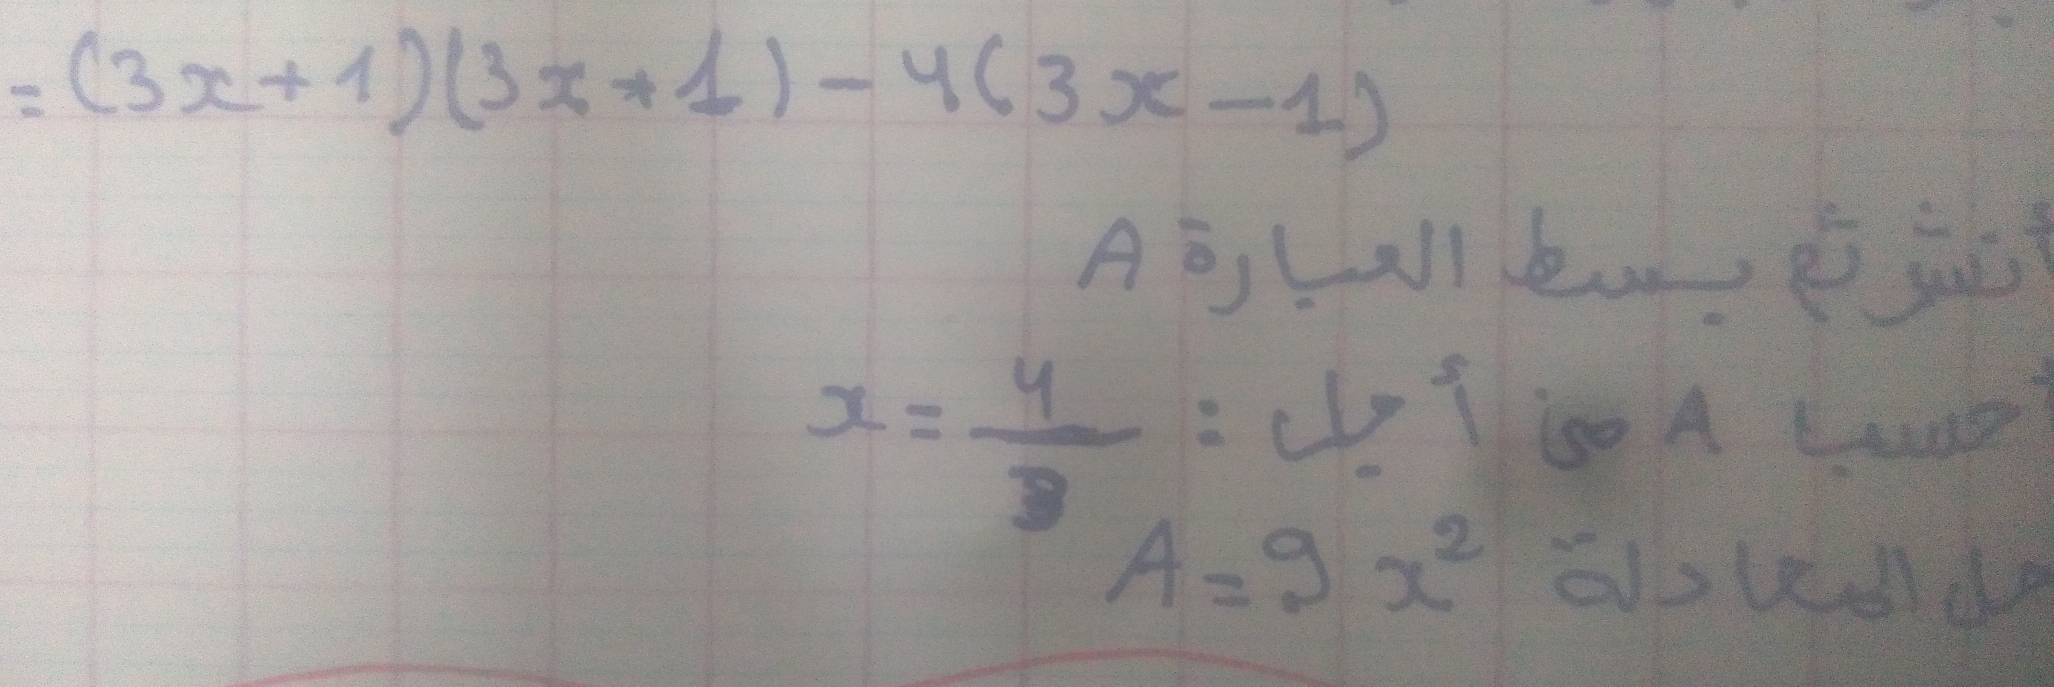 = (3x+1)(3x+1) - 4(3x-1)
أنشر ثم بسط العبارة A
أحسب A من أجل : x = 4/3
حل المعادلة A = 9x²